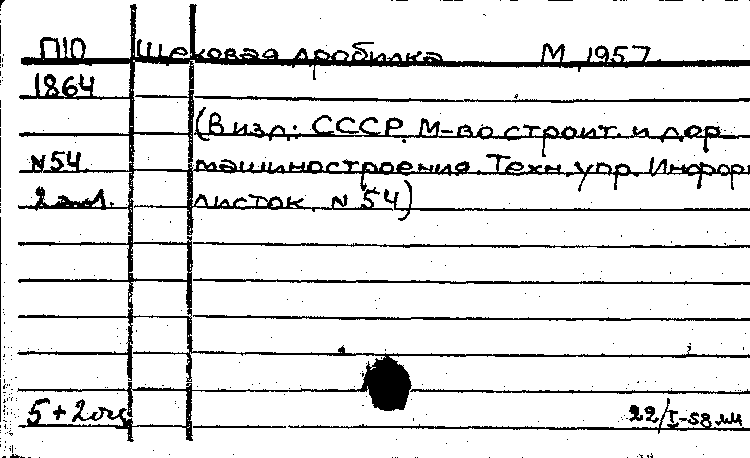 П10 Щековая дробилка М, 1957.
1864
(В изд: СССР. М-во строит. и дор.
N54. машиностроения. Техн. упр. Информ
листок. N 54)
22/I-58